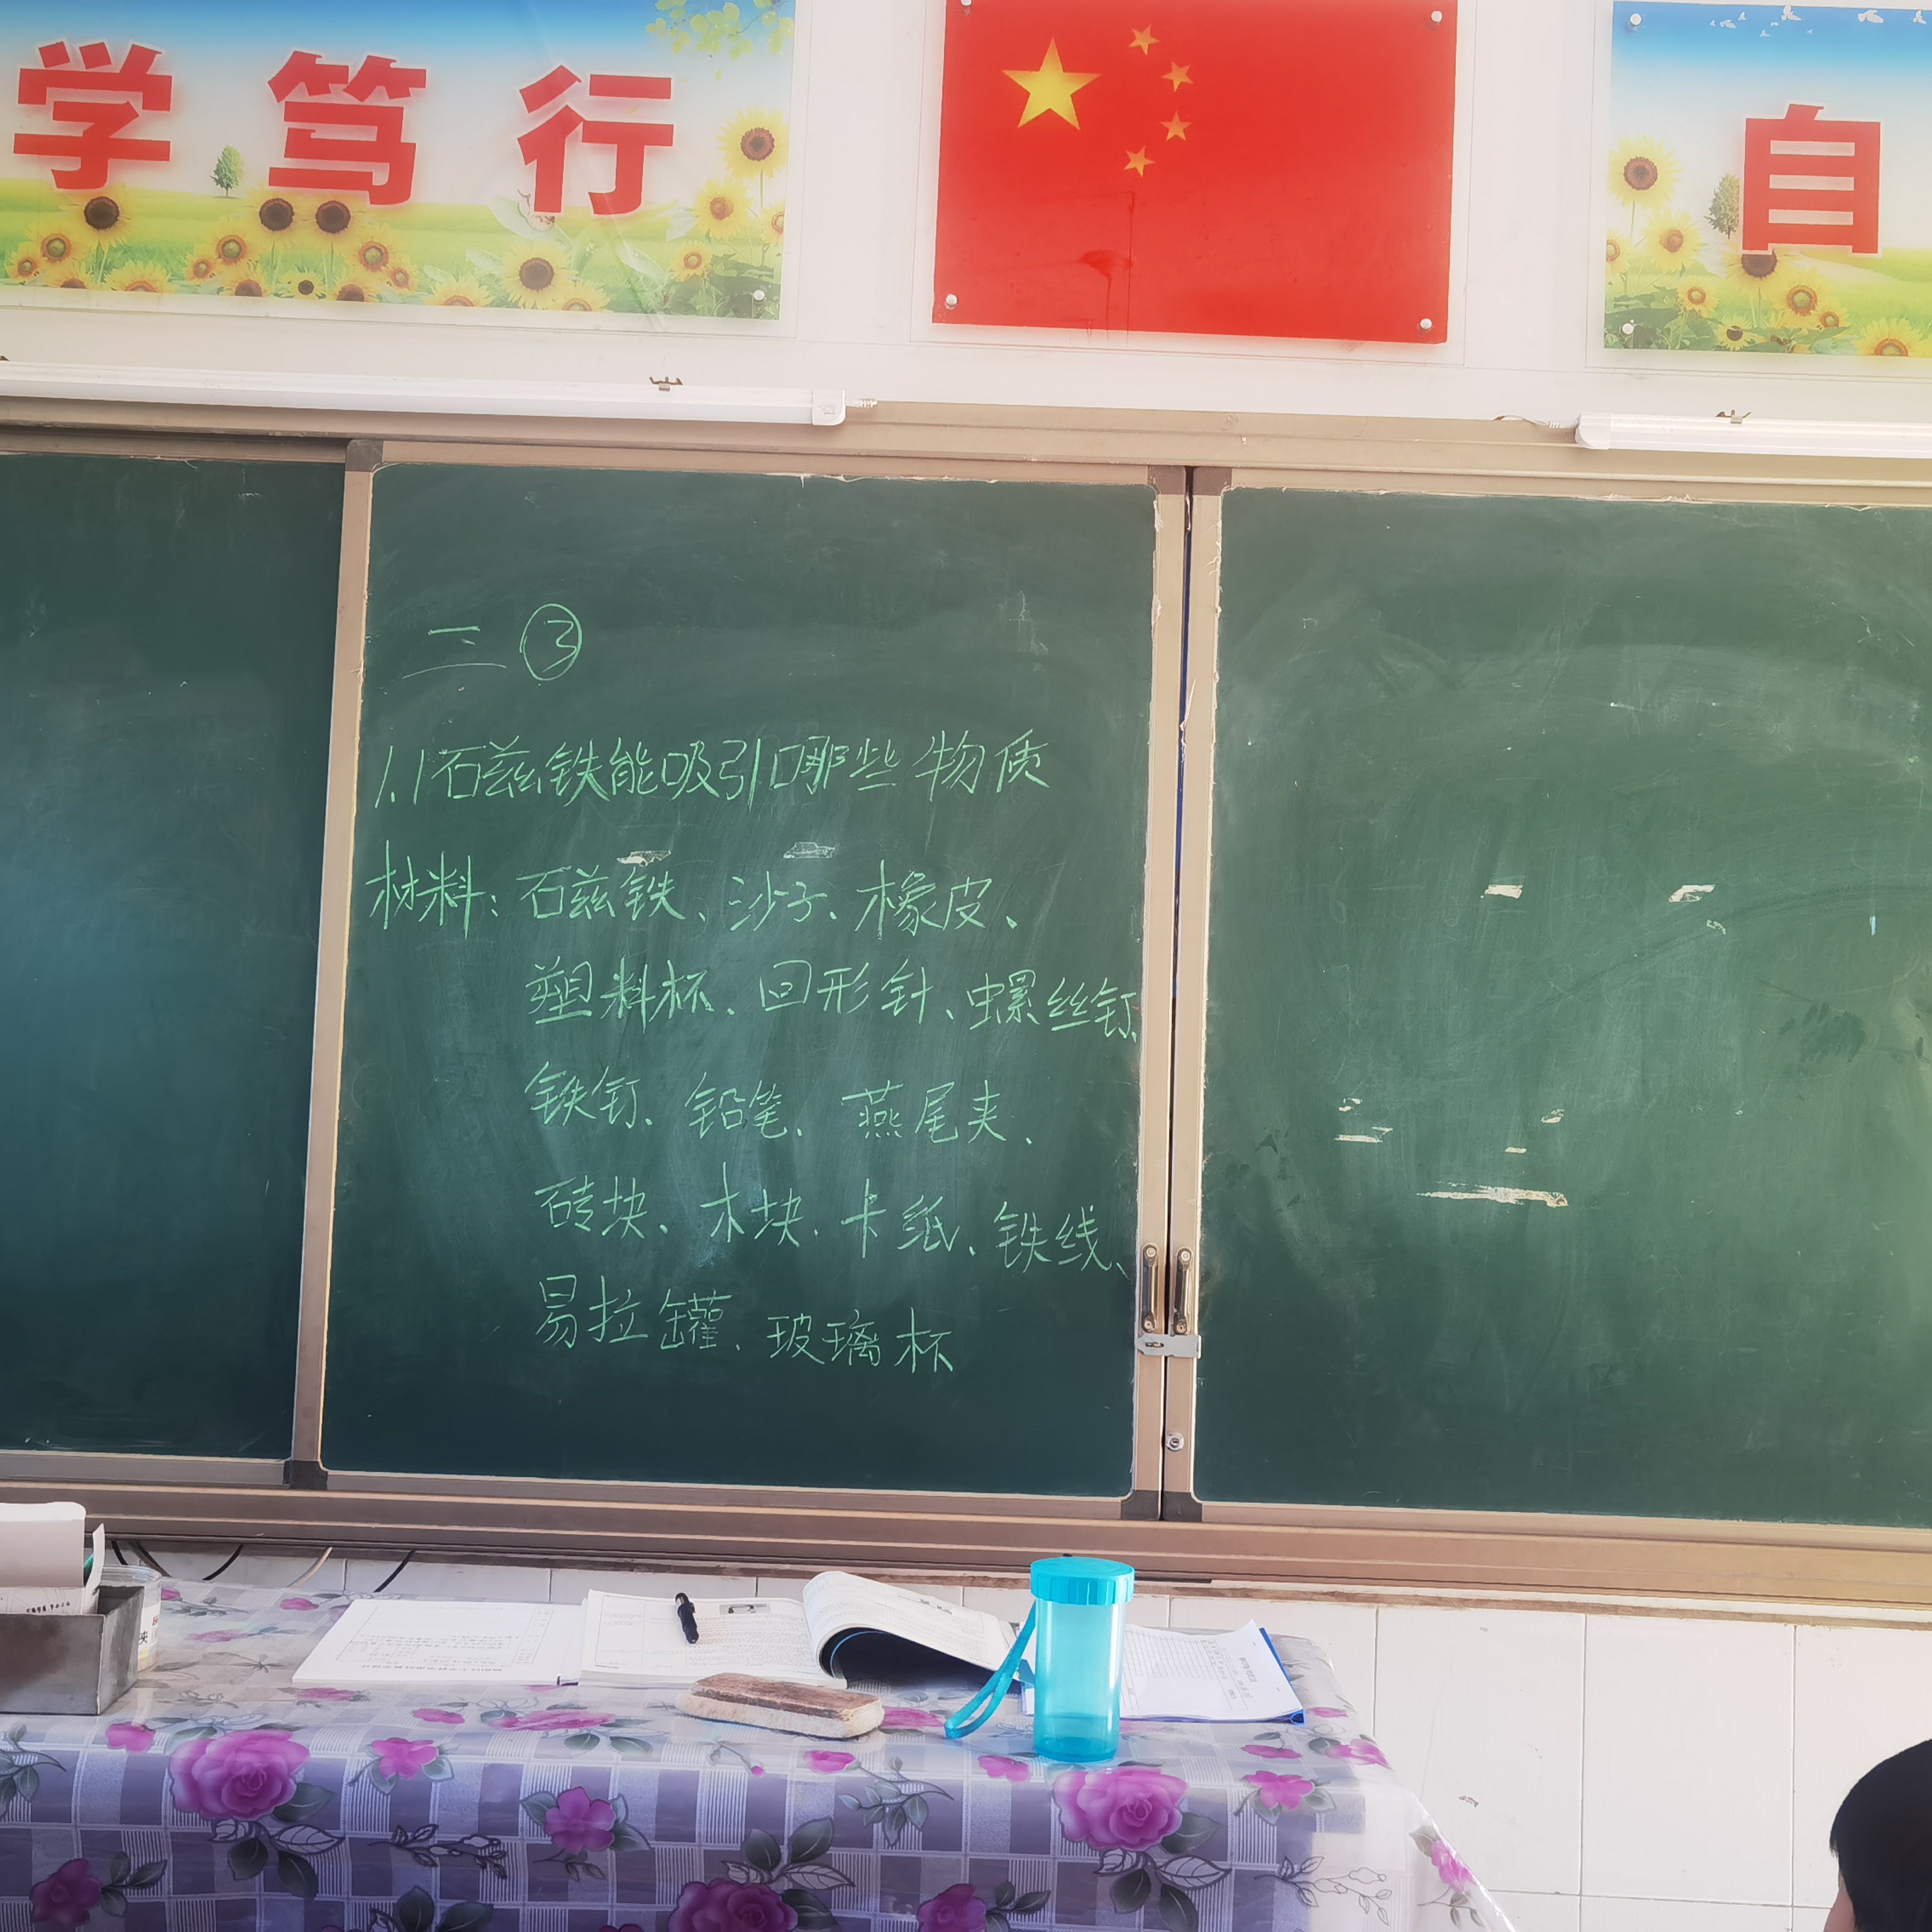 学笃行
自
三 ③
1.1磁铁能吸引哪些物质
材料：磁铁、沙子、橡皮、
塑料杯、回形针、螺丝钉、
铁钉、铅笔、燕尾夹、
砖块、木块、卡纸、铁线、
易拉罐、玻璃杯
夹